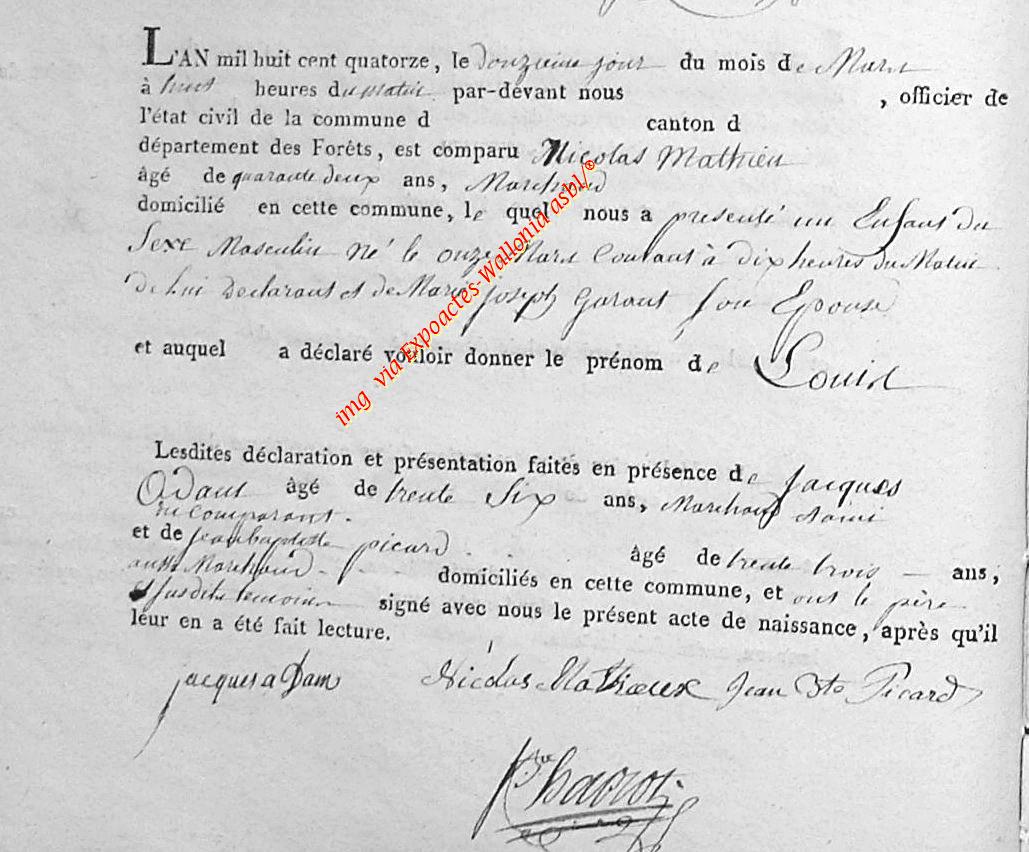 L'AN mil huit cent quatorze, le douzieme jour du mois de Mars
à huit heures du matin par-devant nous , officier de
l'état civil de la commune d canton d
département des Forêts, est comparu Nicolas Mathieu
âgé de quarante deux ans, Marchand
domicilié en cette commune, le quel nous a presenté un Enfant du
Sexe Masculin né le onze Mars Courant à dix heures du Matin
de lui Declarant et de Marie joseph Garant son Epouse
et auquel a déclaré vouloir donner le prénom de Louis
Lesdites déclaration et présentation faites en présence de jacques
Adam âgé de trente Six ans, Marchand
du Comparant.
et de jean baptiste picard. âgé de trente trois — ans,
aussi Marchand. domiciliés en cette commune, et ont le père
et susdits temoins signé avec nous le présent acte de naissance, après qu'il
leur en a été fait lecture.
jacques a Dam Nicolas Mathieux Jean Bte Picard
img via Expoactes-Wallonia asbl/©